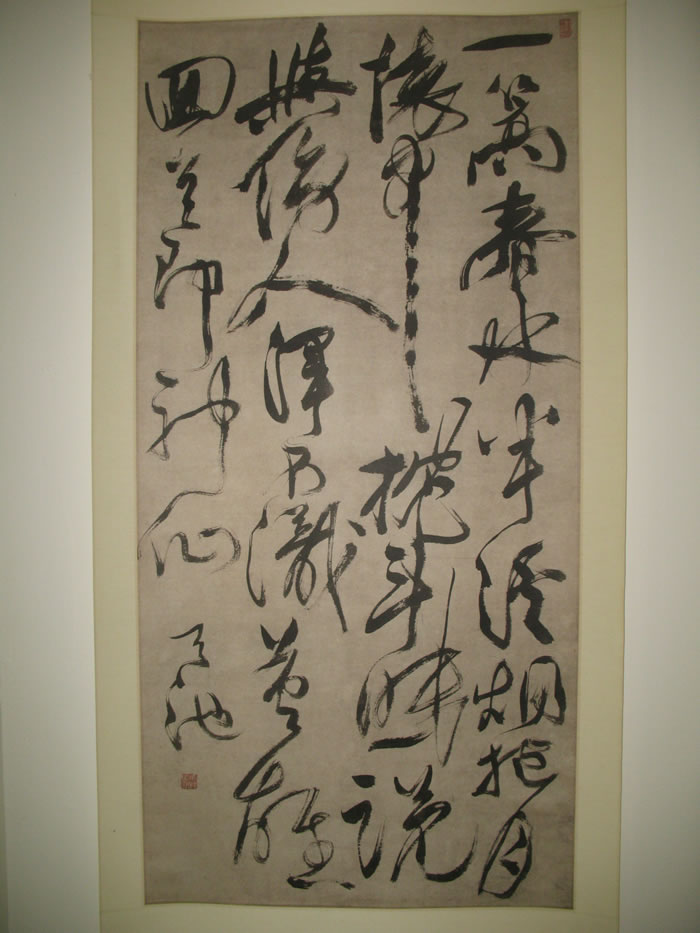 一篙春水半溪烟抱月
懷中枕斗眠説
與傍人渾不識英雄
回首即神仙 天池